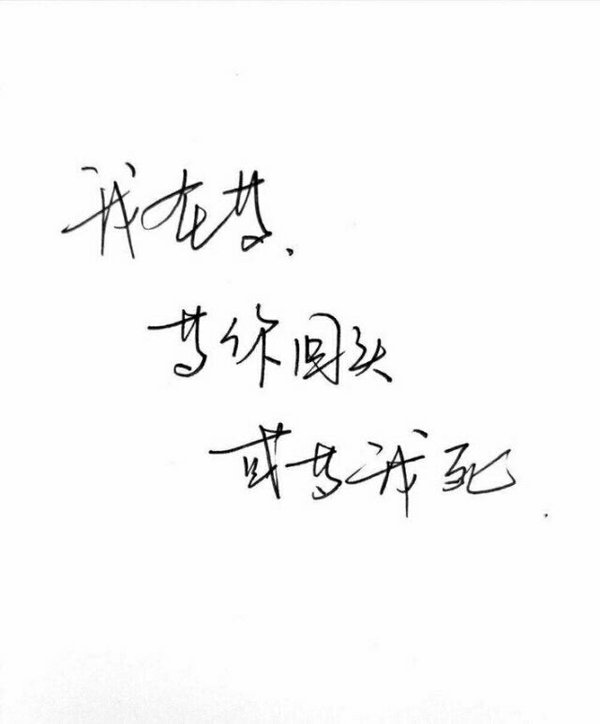 我在等、
等你回头
或等我死.